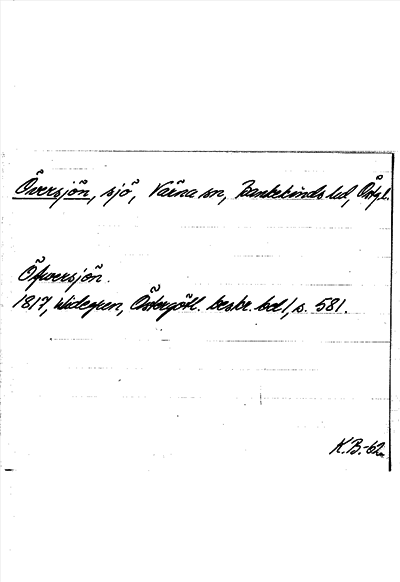 Översjön, sjö, Värna sn, Bankekinds hd, Östgl.
Öfversjön.
1817, Widegren, Östergötl. beskr. bd 1, s. 581.
K.B.-62